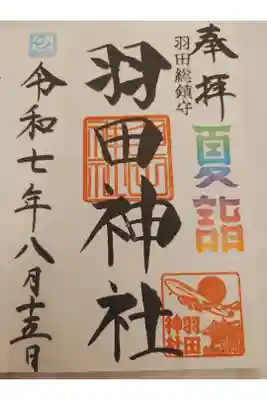 奉拝
夏詣
羽田総鎮守
羽田神社
羽田
神社
令和七年八月十五日